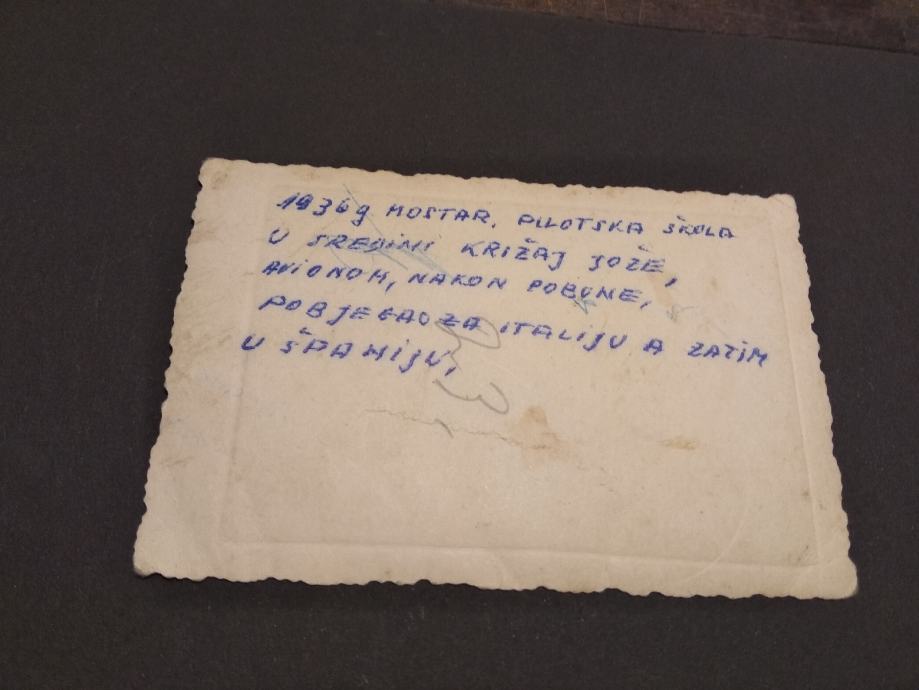 1936g MOSTAR. PILOTSKA ŠKOLA
U SREDINI KRIŽAJ JOŽE,
AVIONOM, NAKON POBUNE,
POBJEGAO ZA ITALIJU A ZATIM
U ŠPANIJU,